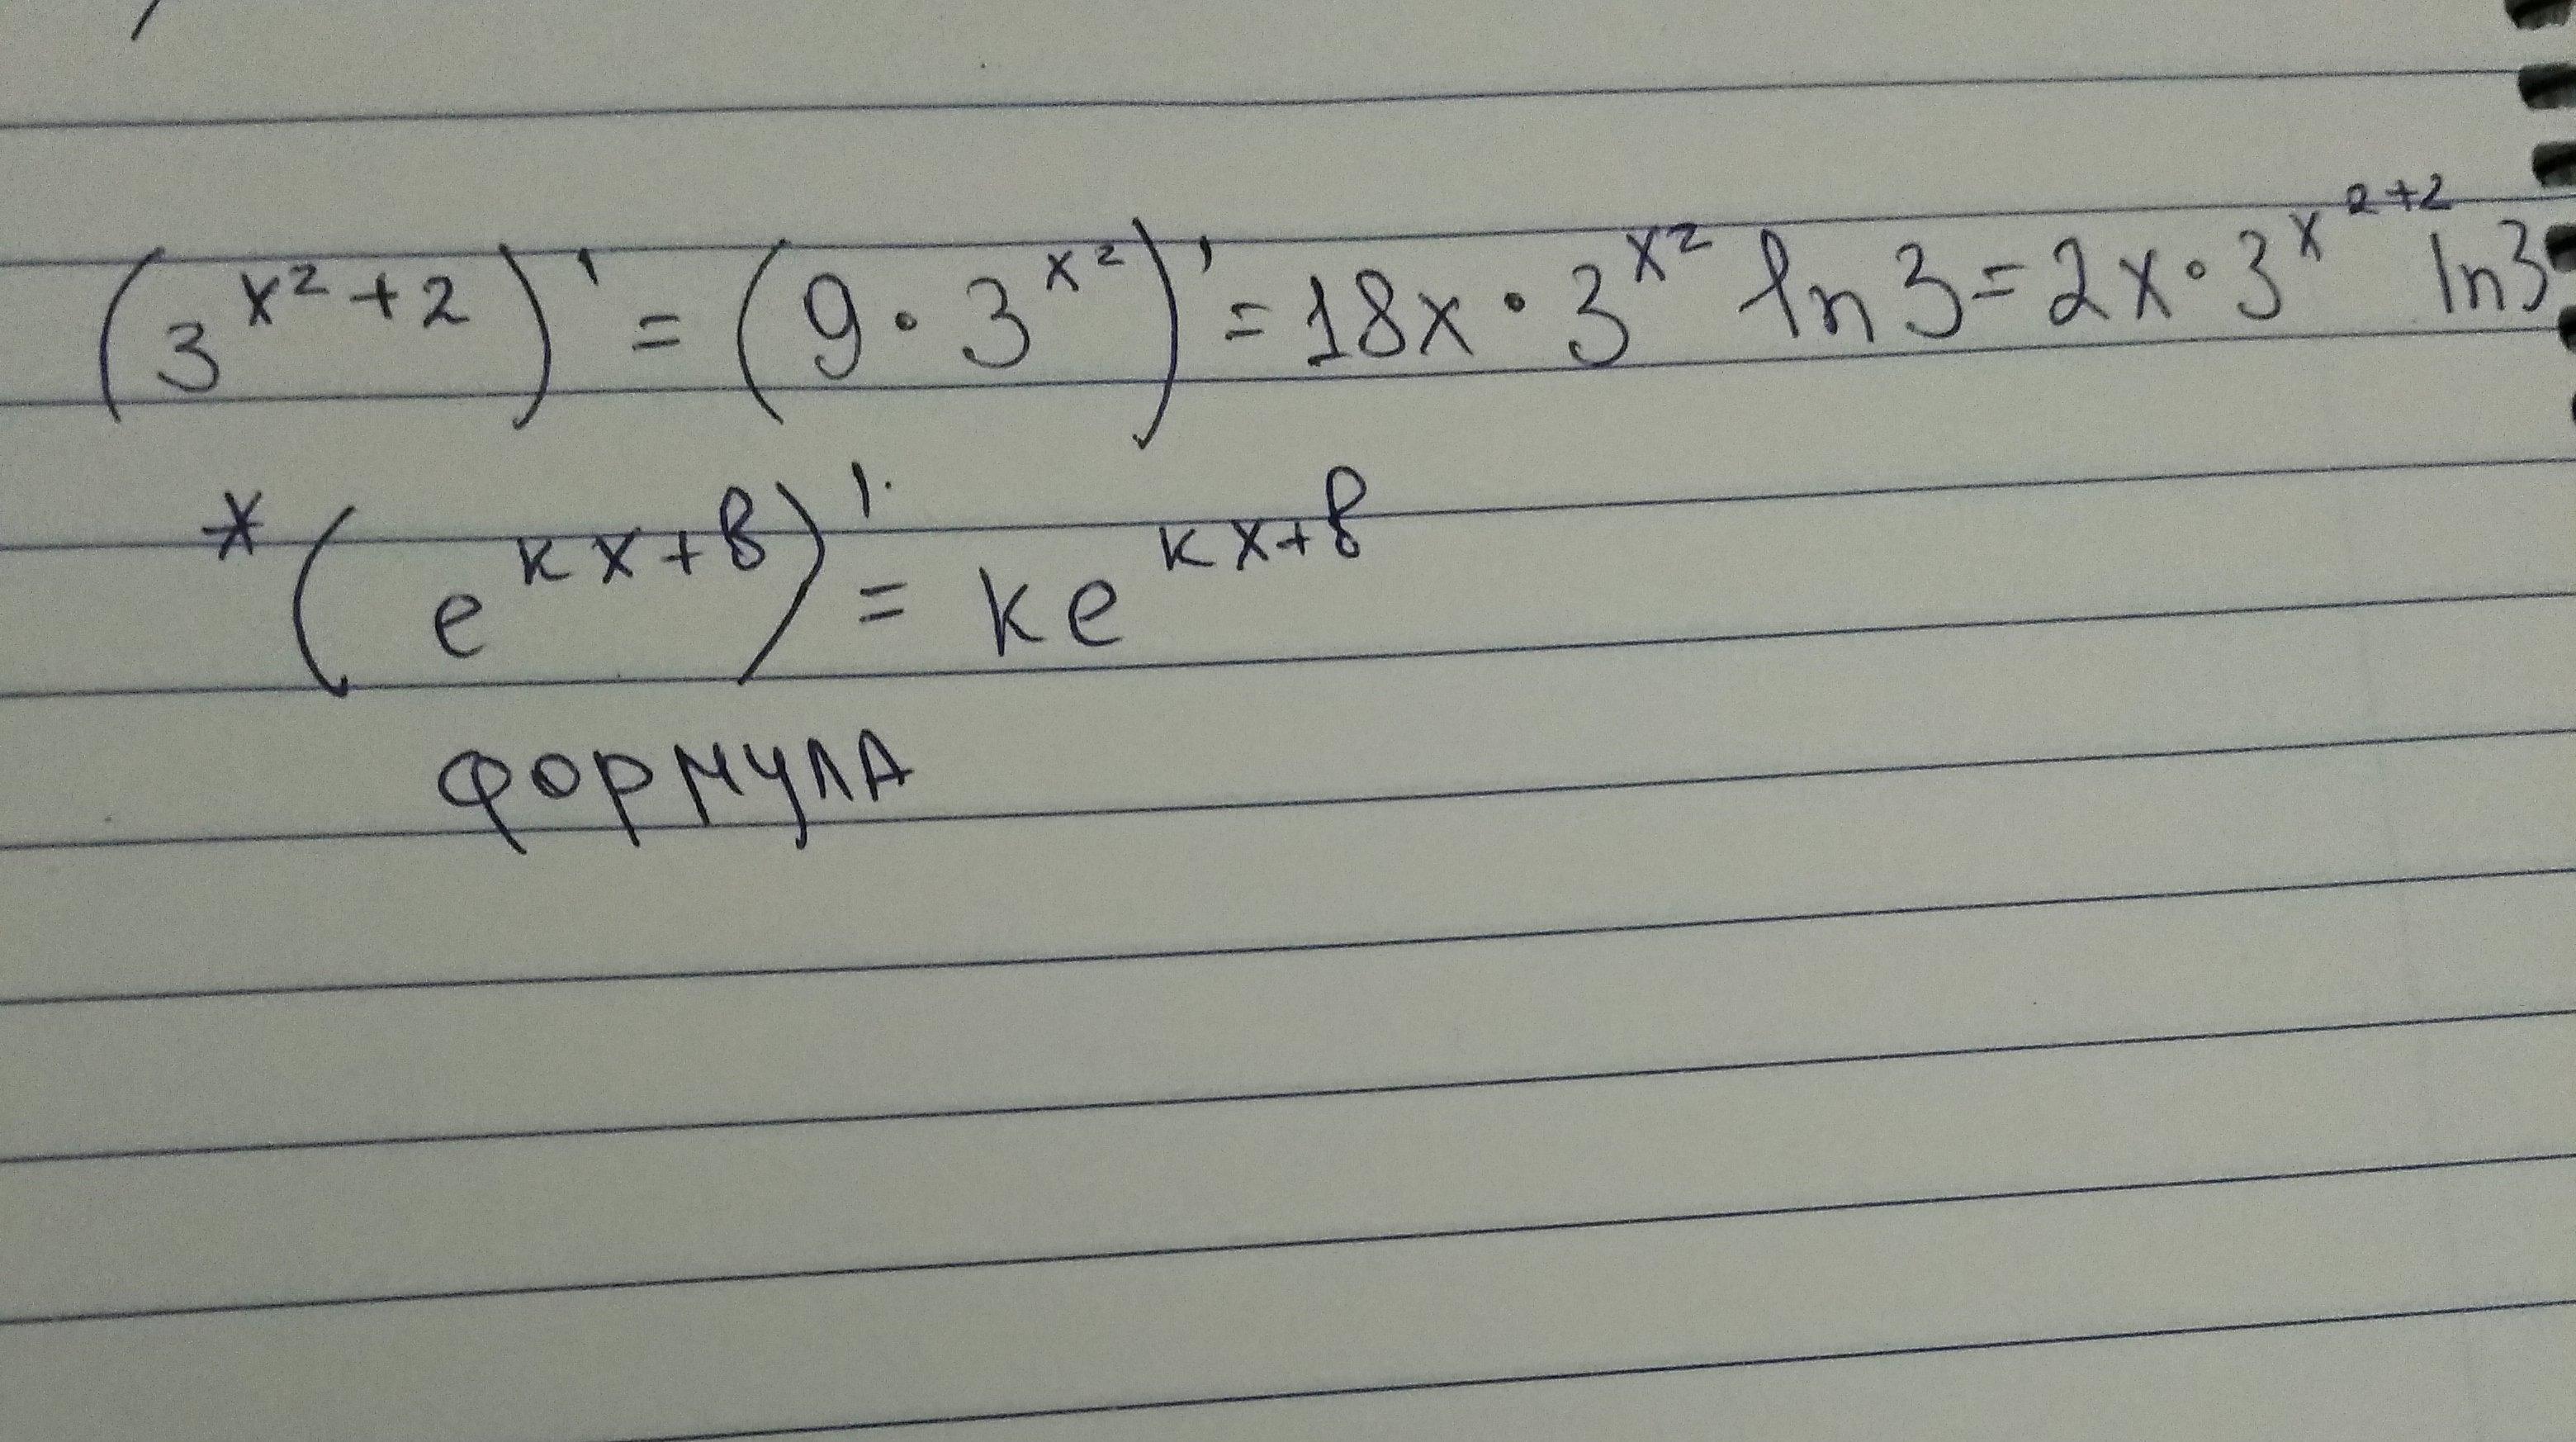 (3^{x^2+2})' = (9 · 3^{x^2})' = 18x · 3^{x^2} ln 3 = 2x · 3^{x^{2+2}} ln 3
* (e^{kx+в})' = ke^{kx+в}
формула